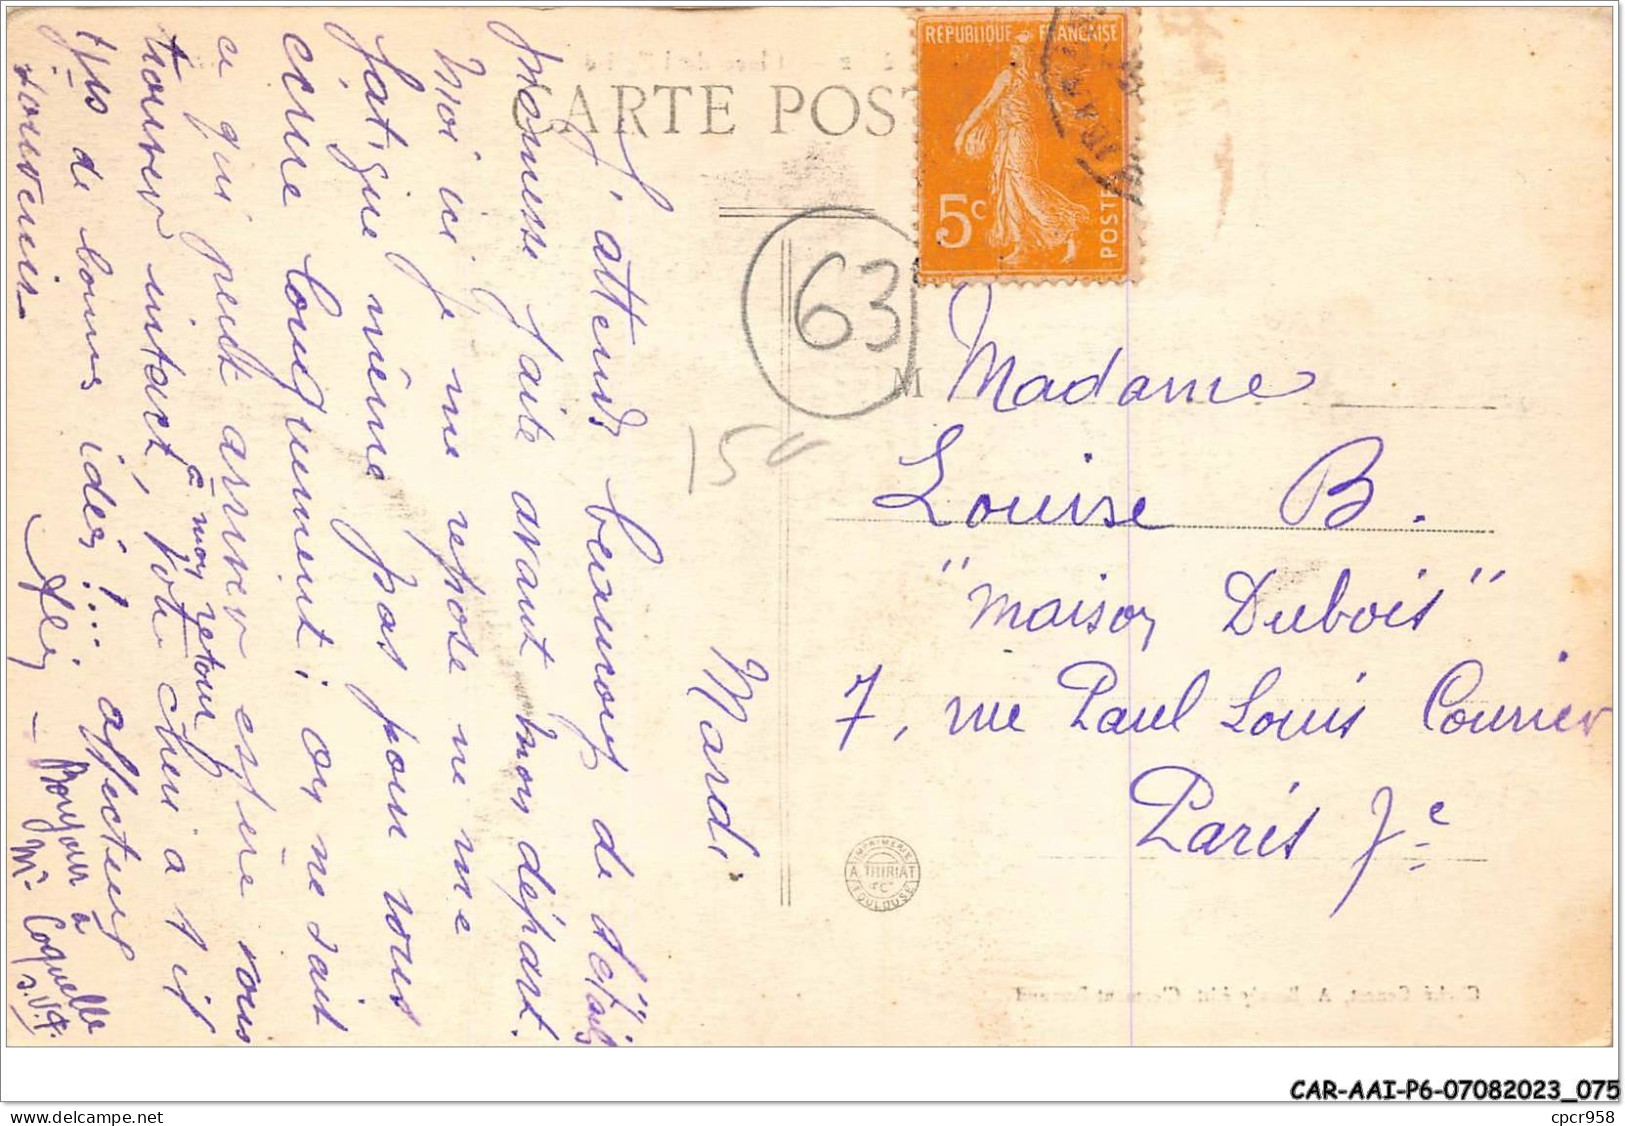 REPUBLIQUE FRANÇAISE
5c
POSTES
CARTE POST
63
15
M
Madame
Louise B.
"Maison Dubois"
7, rue Paul Louis Courier
Paris 7e
IMPRIMERIE
A. THIRIAT
& Cie
TOULOUSE
Mardi
J'attends beaucoup de "détails"
promesse faite avant mon départ.
Moi ici je me repose ne me
fatigue même pas pour vous
écrire longuement; on ne sait
ce qui peut arriver espère vous
trouver intact, votre cher à 1 lit
à mon retour
de bonnes idées!... affectueux
souvenirs
Bonjour à
Mr Coquelle
s.v.p.
CAR-AAI-P6-07082023_075
cpcr958